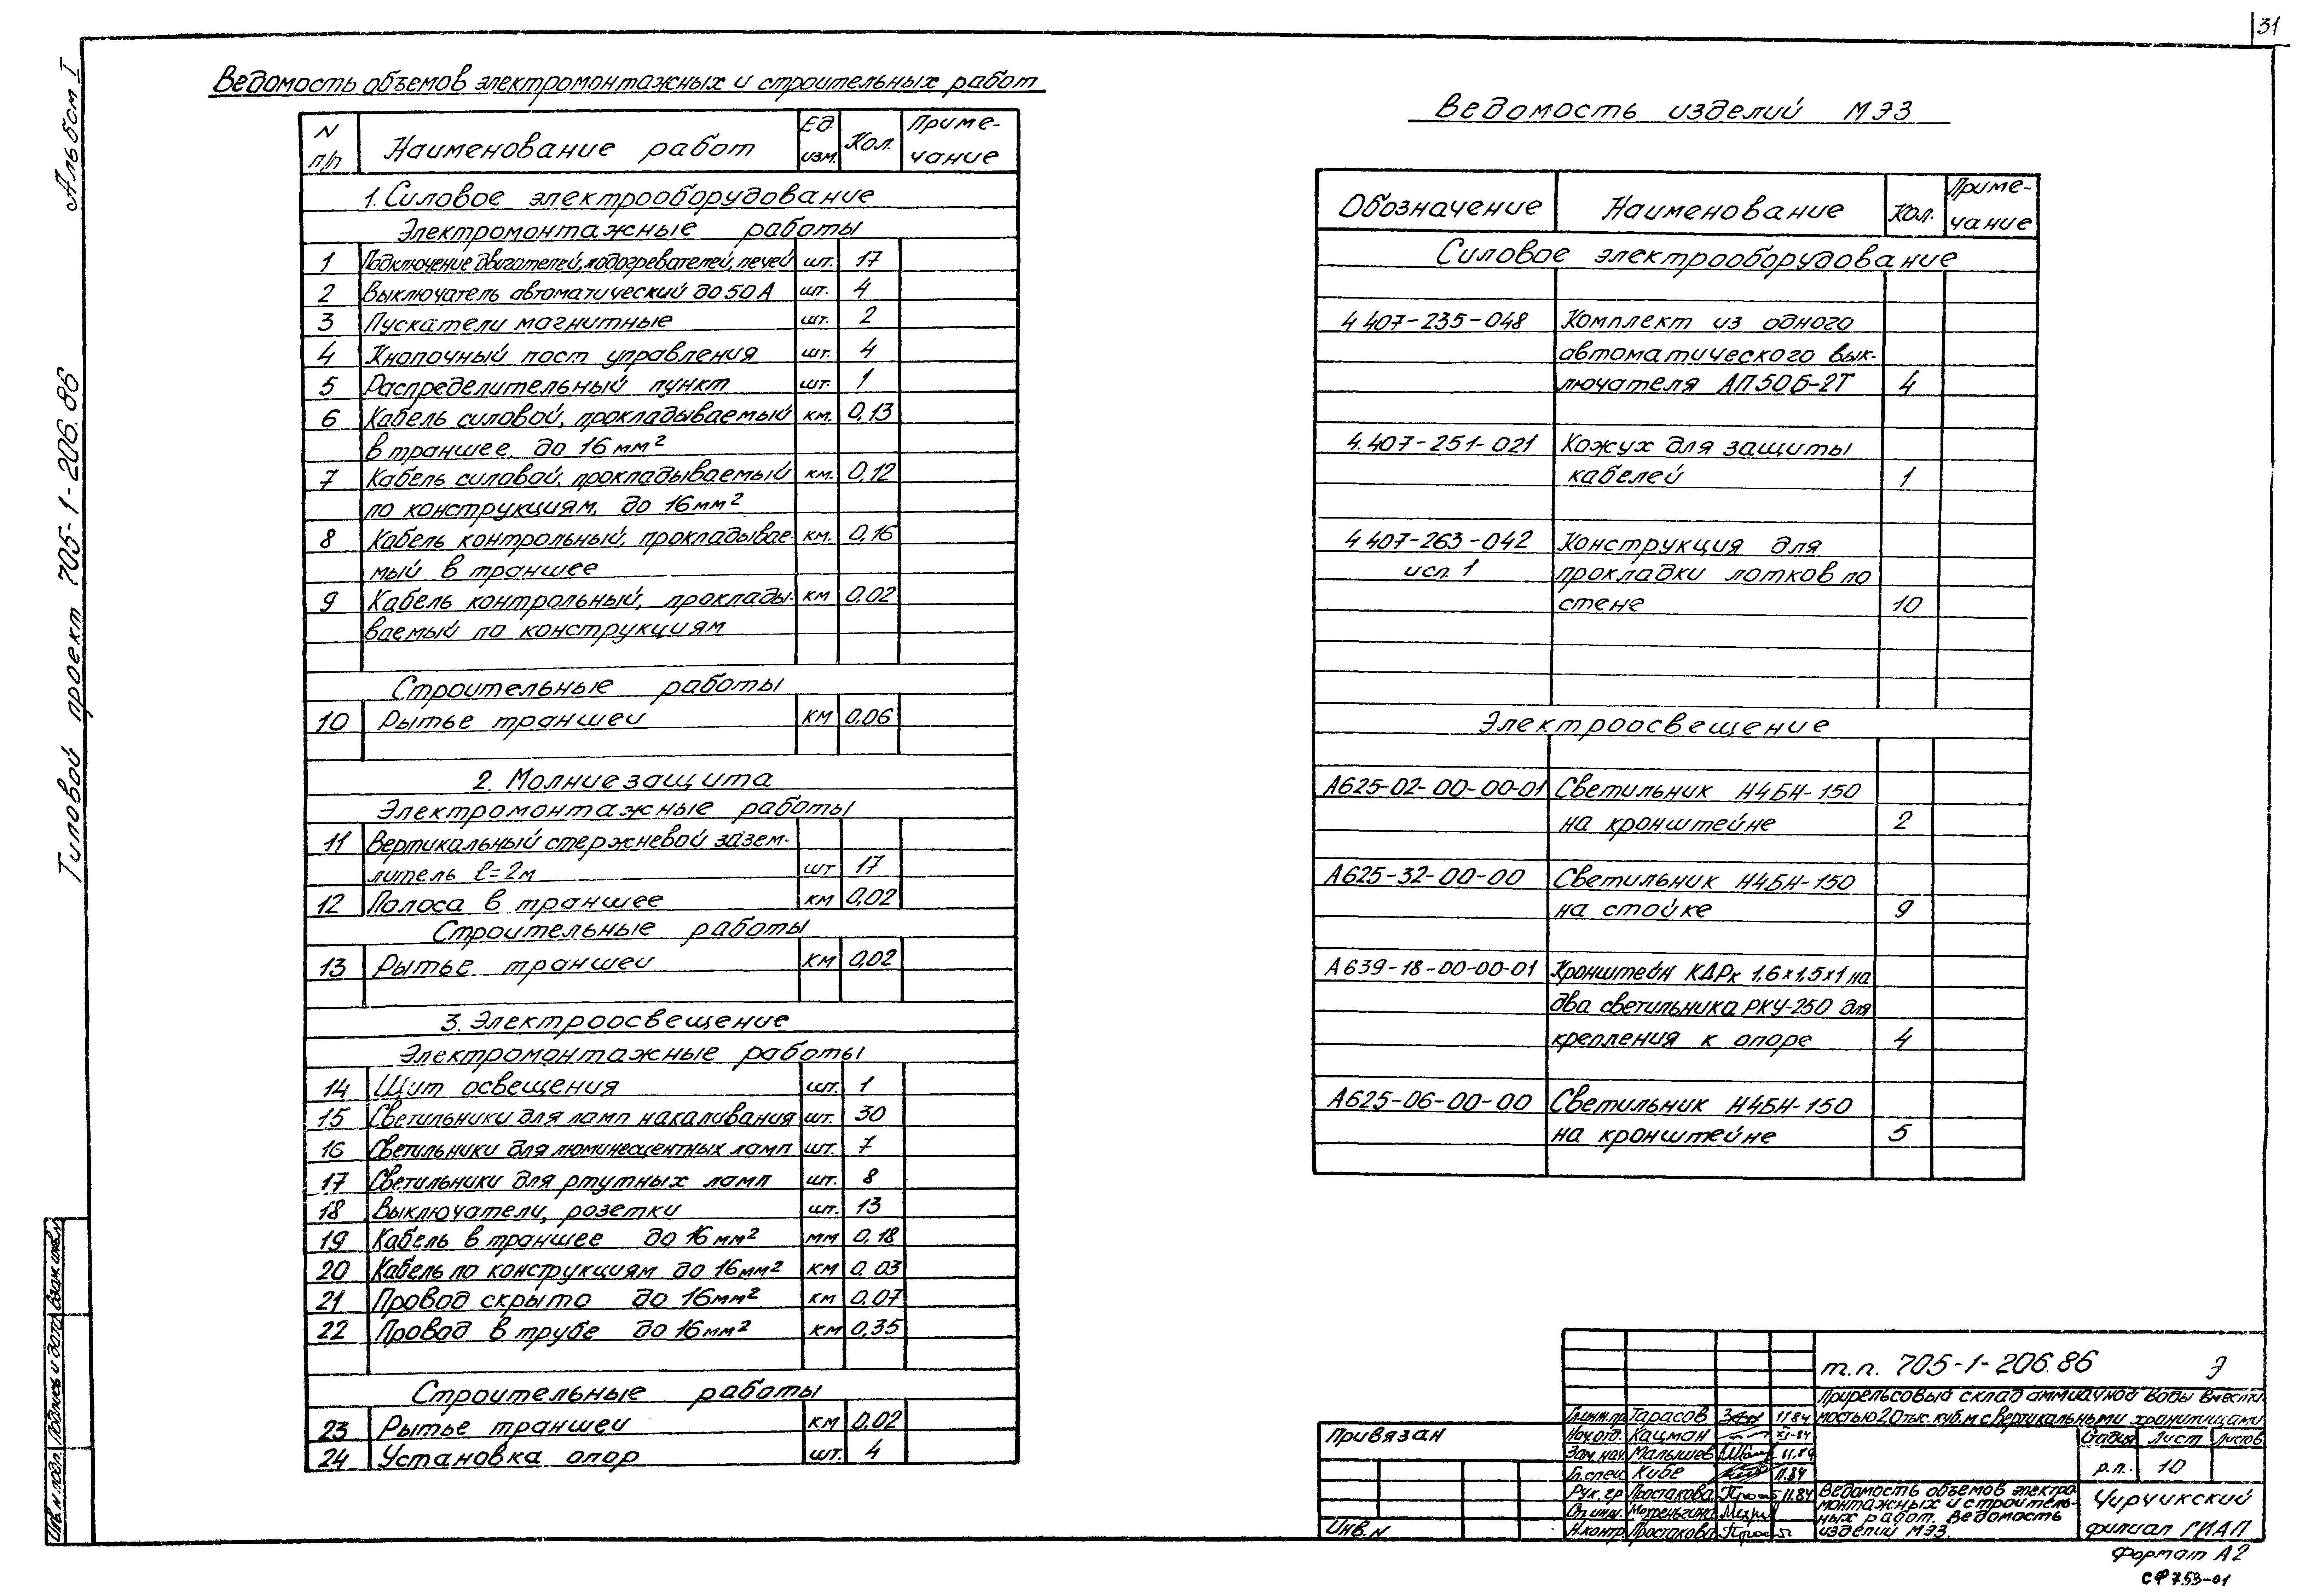 31
Альбом I
Типовой проект 705-1-206.86
Ведомость объемов электромонтажных и строительных работ
N п/п | Наименование работ | Ед. изм. | Кол. | Приме-чание
1. Силовое электрооборудование
Электромонтажные работы
1 Подключение двигателей, подогревателей, печей шт. 17
2 Выключатель автоматический до 50 А шт. 4
3 Пускатели магнитные шт. 2
4 Кнопочный пост управления шт. 4
5 Распределительный пункт шт. 1
6 Кабель силовой, прокладываемый км. 0,13
в траншее, до 16 мм²
7 Кабель силовой, прокладываемый км. 0,12
по конструкциям, до 16 мм²
8 Кабель контрольный, прокладывае- км. 0,16
мый в траншее
9 Кабель контрольный, проклады- км 0,02
ваемый по конструкциям
Строительные работы
10 Рытье траншеи км 0,06
2. Молниезащита
Электромонтажные работы
11 Вертикальный стержневой зазем-
литель l=2м шт 17
12 Полоса в траншее км 0,02
Строительные работы
13 Рытье траншеи км 0,02
3. Электроосвещение
Электромонтажные работы
14 Щит освещения шт. 1
15 Светильники для ламп накаливания шт. 30
16 Светильники для люминесцентных ламп шт. 7
17 Светильники для ртутных ламп шт. 8
18 Выключатели, розетки шт. 13
19 Кабель в траншее до 16 мм² мм 0,18
20 Кабель по конструкциям до 16 мм² км 0,03
21 Провод скрыто до 16 мм² км 0,07
22 Провод в трубе до 16 мм² км 0,35
Строительные работы
23 Рытье траншеи км 0,02
24 Установка опор шт. 4
Ведомость изделий МЭЗ
Обозначение | Наименование | Кол. | Приме-чание
Силовое электрооборудование
4 407-235-048 Комплект из одного
автоматического вык-
лючателя АП50Б-2Т 4
4.407-251-021 Кожух для защиты
кабелей 1
4 407-263-042 Конструкция для
исп. 1 прокладки лотков по
стене 10
Электроосвещение
А625-02-00-00-01 Светильник Н4БН-150
на кронштейне 2
А625-32-00-00 Светильник Н4БН-150
на стойке 9
А639-18-00-00-01 Кронштейн КДРк 1,6×1,5×1 на
два светильника РКУ-250 для
крепления к опоре 4
А625-06-00-00 Светильник Н4БН-150
на кронштейне 5
т.п. 705-1-206.86 Э
Прирельсовый склад аммиачной воды вмести-
мостью 2,0 тыс. куб. м с вертикальными хранилищами
Гл.инж.пр. Тарасов 11 84
Нач. отд. Кацман XI-84
Зам. нач. Малышев 11.84
Гл. спец. Кибе 11.84
Рук. гр Простакова 11.84
Ст. инж.
Н.контр. Простакова
Стадия Лист Листов
р.п. 10
Ведомость объемов электро-
монтажных и строитель-
ных работ. Ведомость
изделий МЭЗ.
Чирчикский
филиал ГИАП
Привязан
Инв. N
Инв. N подл. Подпись и дата Взам. инв. N
Формат А2
СФ 753-01